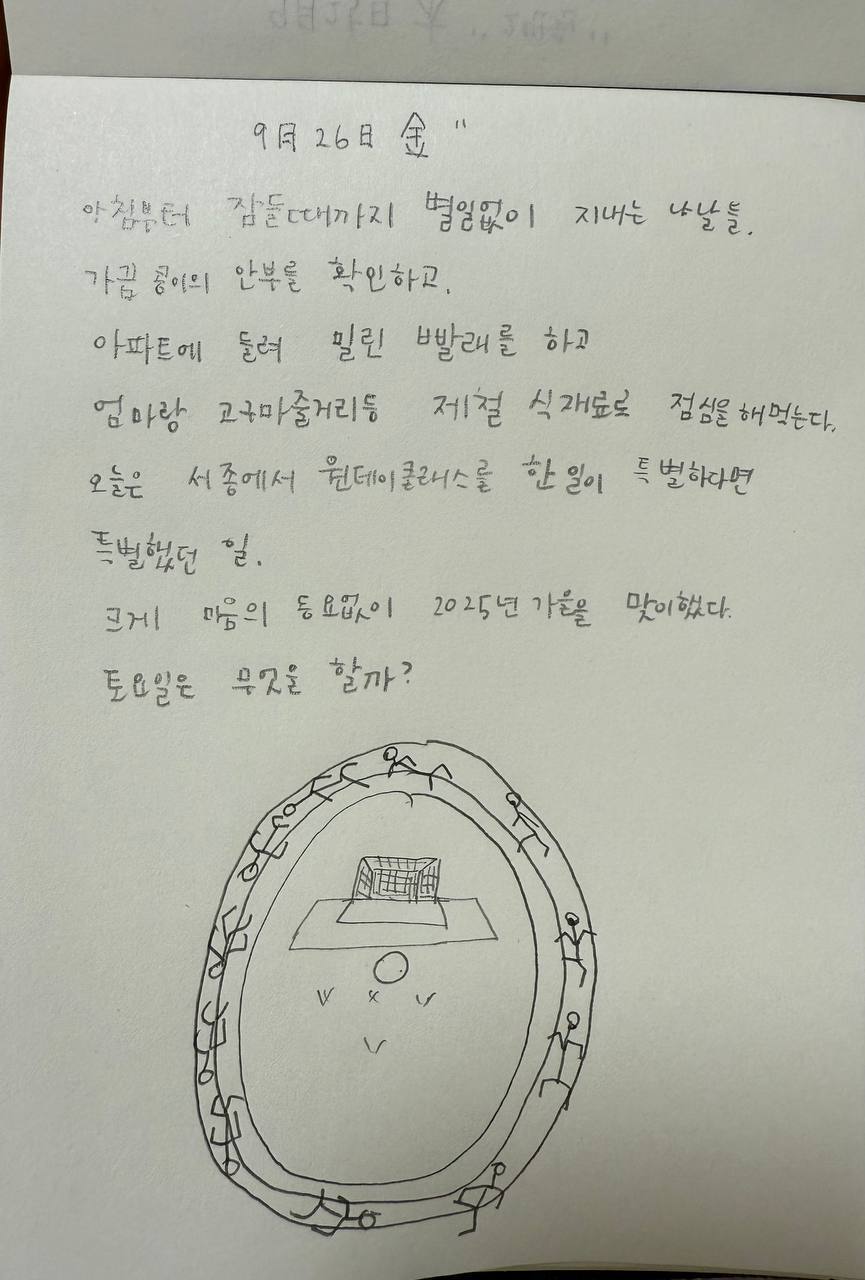 9月 26日 金 "
아침부터 잠들때까지 별일없이 지내는 나날들.
가끔 콩이의 안부를 확인하고,
아파트에 들려 밀린 빨래를 하고
엄마랑 고구마줄거리등 제철 식재료로 점심을 해먹는다.
오늘은 세종에서 원데이클래스를 한 일이 특별하다면
특별했던 일.
크게 마음의 동요없이 2025년 가을을 맞이했다.
토요일은 무엇을 할까?